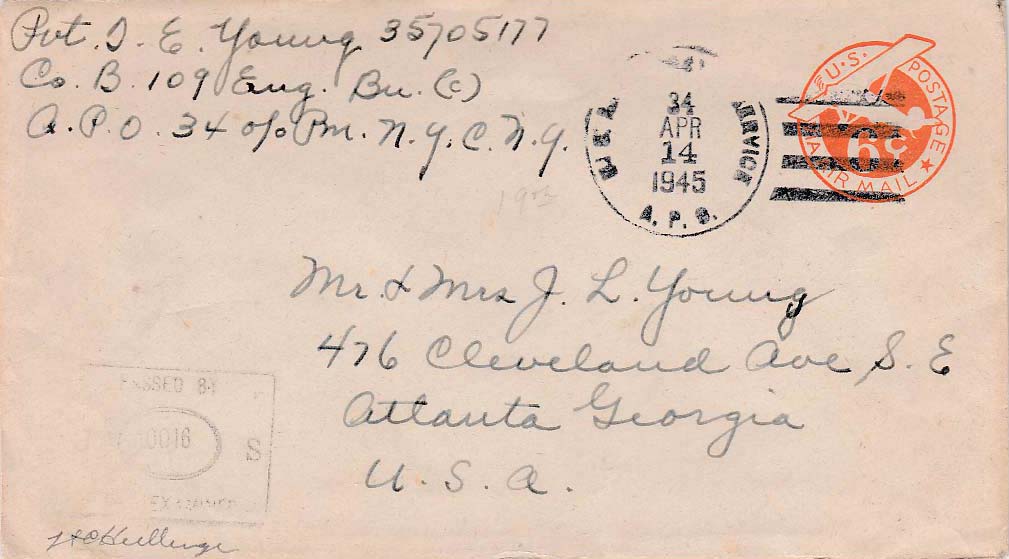 Pvt. D. E. Young 35705177
Co. B. 109 Eng. Bn. (C)
A.P.O. 34 c/o Pm. N.Y.C. N.Y.
34
APR
14
1945
A.P.S.
U.S. POSTAGE
6¢
AIR MAIL
Mr. & Mrs J. L. Young
476 Cleveland Ave S.E
Atlanta Georgia
U.S.A.
PASSED BY
S